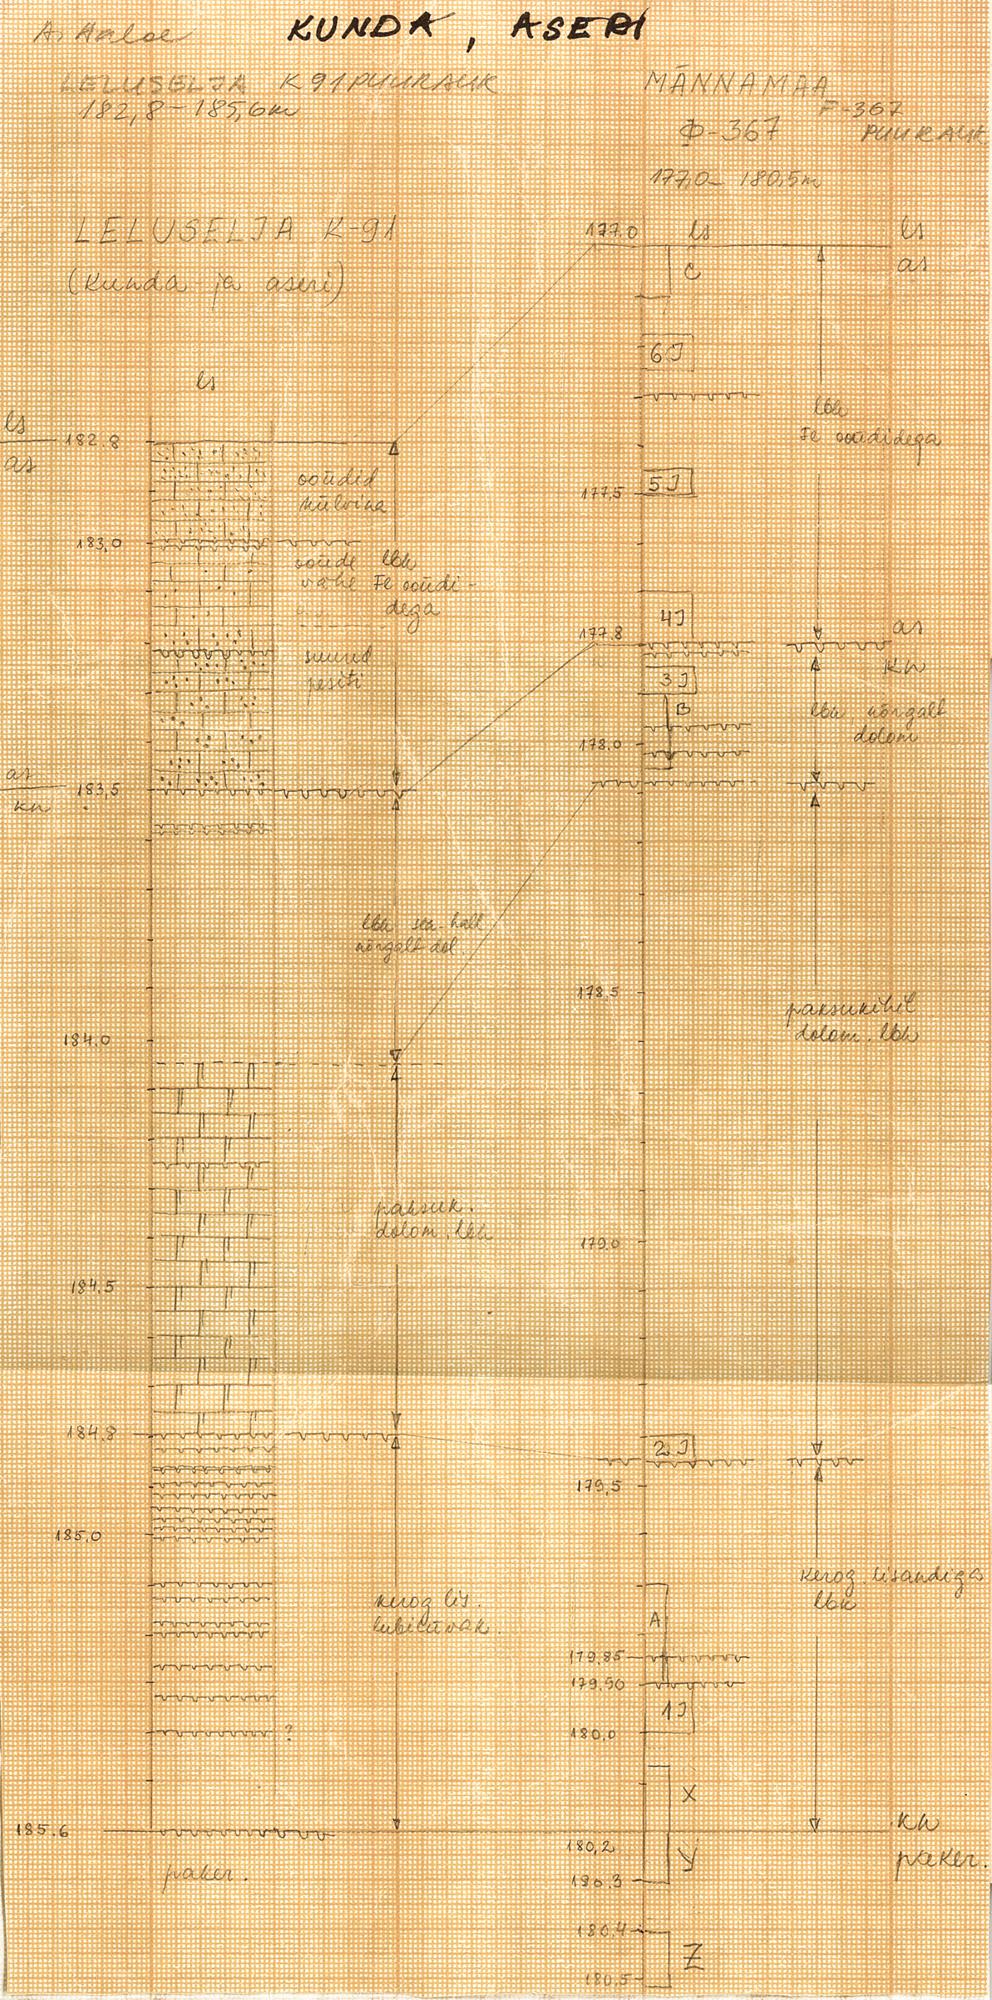 KUNDA, ASERI
LELUSELJA K91 PUURAUK
182,8-185,6m
MÄNNAMAA
F-367
Ф-367
PUURAUK
177,0- 180,5m
LELUSELJA K-91
(Kunda ja aseri)
ls
ls
182.8
as
ooiidid
külvina
183,0
ooiide lbk
vähe Fe ooiidi-
dega
suured
pesiti
as
183,5
kn
lbk
nõrgalt dol.
184.0
paksuk.
dolom. lbk
184,5
184,8
185,0
kerog. lis.
?
185.6
paker.
177.0
ls
ls
as
C
6J
lbk
Fe ooiididega
5J
177,5
4J
177.8
as
kn
3J
B
lbk, nõrgalt
dolom
178.0
178,5
paksukihil
dolom. lbk
179.0
2J
179,5
kerog. lisandiga
lbk
A
179.85
179.90
1J
180,0
X
kn
180,2
Y
paker.
190.3
180.4
Z
180.5